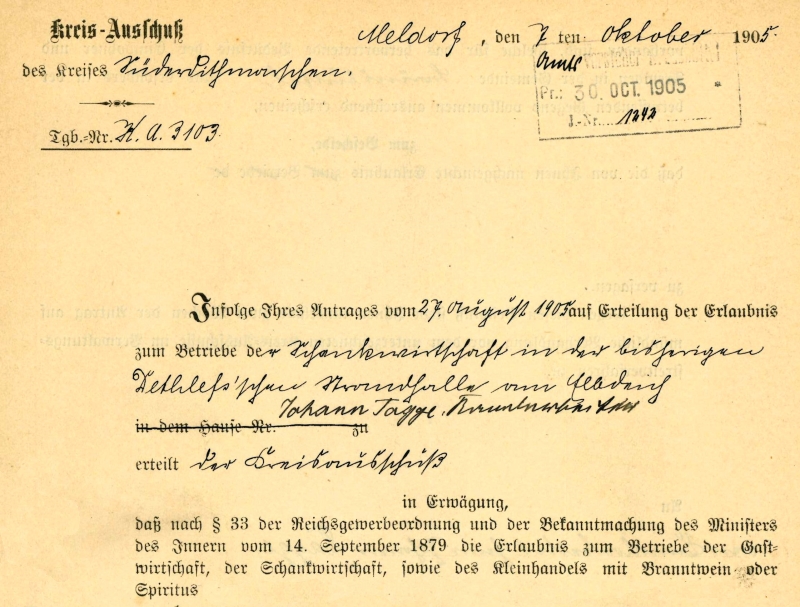 Kreis-Ausschuß
des Kreises Süderdithmarschen.
Tgb.-Nr. K. A. 3103.
Meldorf, den 7 ten Oktober 1905.
Amts
Pr.: 30. OCT. 1905 *
J.-Nr. 1242
Infolge Ihres Antrages vom 27. August 1905 auf Erteilung der Erlaubnis
zum Betriebe der Schankwirtschaft in der bisherigen
Dethlefs'schen Strandhalle am Elbdeich
Johann Tagge,
in dem Hause Nr. zu
erteilt der Kreisausschuß
in Erwägung,
daß nach § 33 der Reichsgewerbeordnung und der Bekanntmachung des Ministers
des Innern vom 14. September 1879 die Erlaubnis zum Betriebe der Gast-
wirtschaft, der Schankwirtschaft, sowie des Kleinhandels mit Branntwein oder
Spiritus